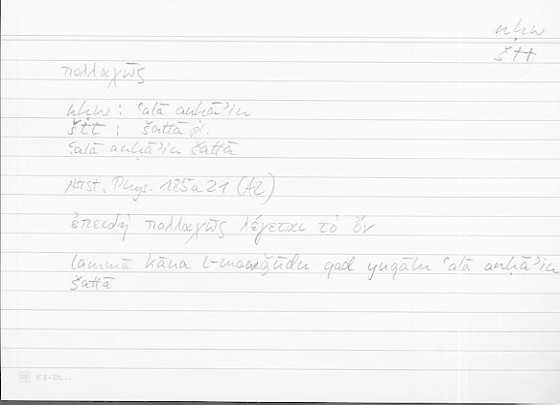 nḥw
štt
πολλαχῶς
nḥw : ʿalā anḥāʾin
štt : šattā pl.
ʿalā anḥāʾin šattā
Arist. Phys. 185a21 (A2)
ἐπειδὴ πολλαχῶς λέγεται τὸ ὄν
lammā kāna l-mawǧūdu qad yuqālu ʿalā anḥāʾin
šattā